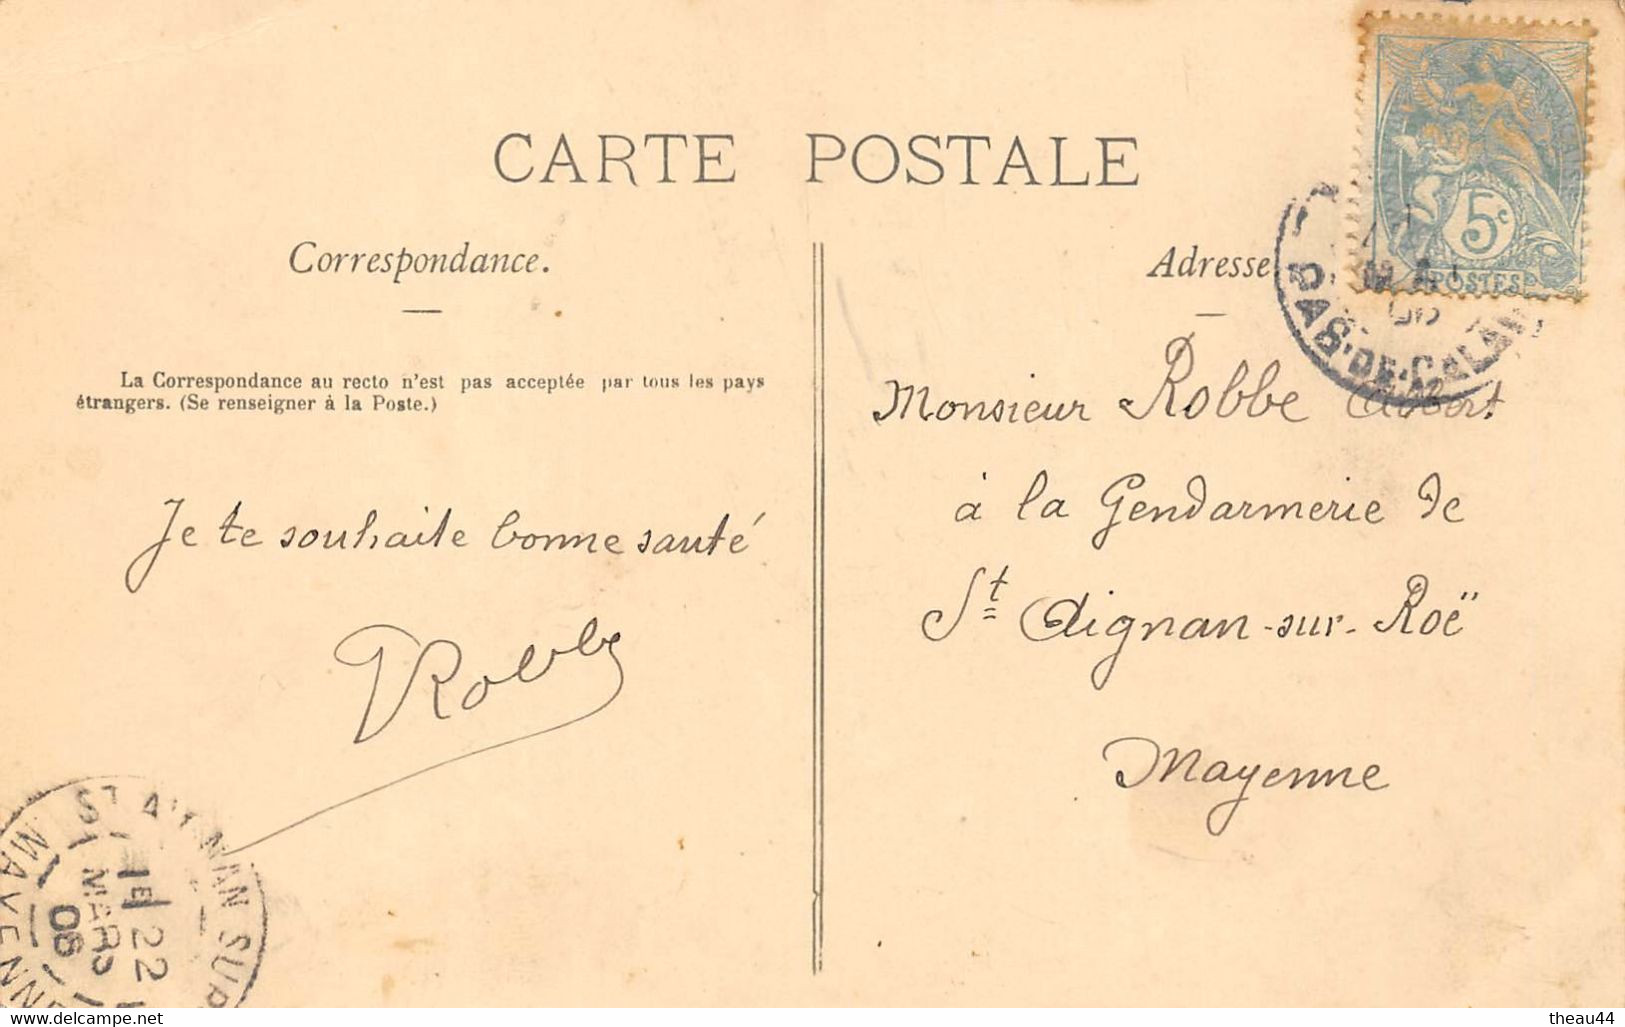 CARTE POSTALE
Correspondance.
La Correspondance au recto n'est pas acceptée par tous les pays
étrangers. (Se renseigner à la Poste.)
Je te souhaite bonne santé
Robbe
Adresse
Monsieur Robbe Albert
à la Gendarmerie de
St Aignan-sur-Roë
Mayenne
5c
POSTES
PAS-DE-CALAIS
ST AIGNAN SUR
1E 22
MARS
06
MAYENNE
www.delcampe.net
theau44